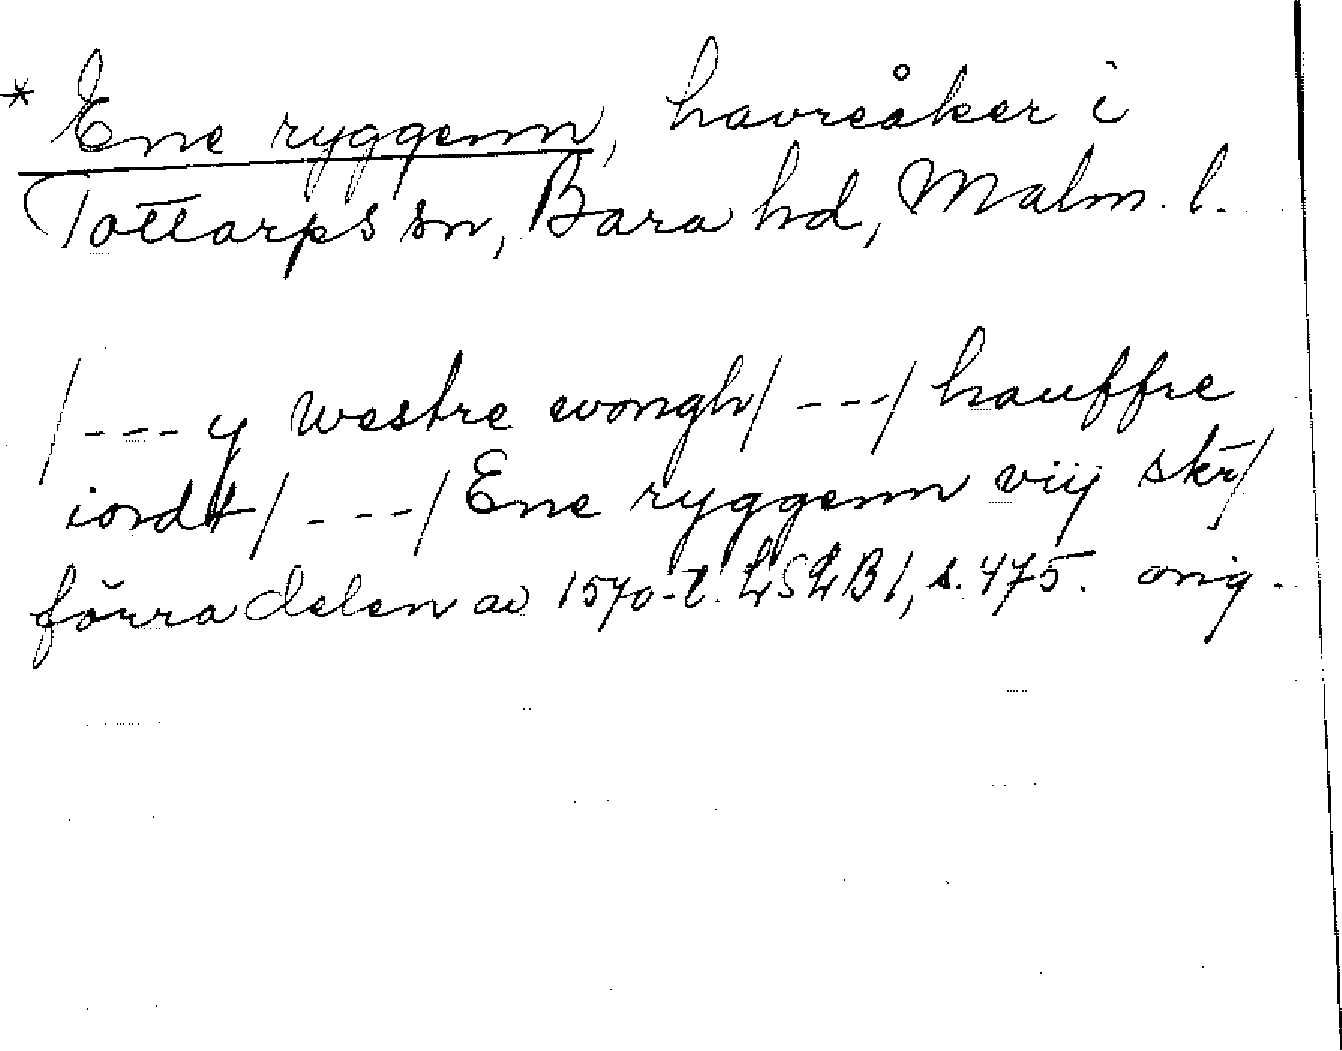 * Ene ryggenn, havreåker i
Tottarps sn, Bara hd, Malm. l.
/---y westre wongh/---/ hauffre
iordt/---/ Ene ryggenn viij skr/
förra delen av 1570-t. LSLB 1, s. 475. orig.